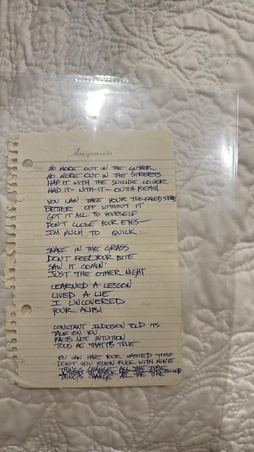 Assignments
NO MORE OUT IN THE GUTTER
NO MORE OUT IN THE STREETS
HAD IT WITH THE SUICIDE LOVER
HAD IT - WITH IT - OUTA ROAD
YOU CAN TAKE YOUR TWO-FACED
BETTER OFF WITHOUT IT
GOT IT ALL TO YOURSELF
DON'T CLOSE YOUR EYES—
I'M MUCH TO QUICK
SNAKE IN THE GRASS
DON'T FEEL YOUR BITE
SAW IT COMIN'
JUST THE OTHER NIGHT
LEARNED A LESSON
LIVED A LIE
I UNCOVERED
YOUR ALIBI
CONSTANT TOLD ITS
ON YOU
FACTS NOT INTUITION
TOLD AS THAT IS TRUE
YOU CAN HAVE YOUR WASTED TIME
DON'T YOU EVEN FUCK WITH MINE
THINGS CHANGE ALL THE TIME
THINGS CHANGE ALL THE TIME